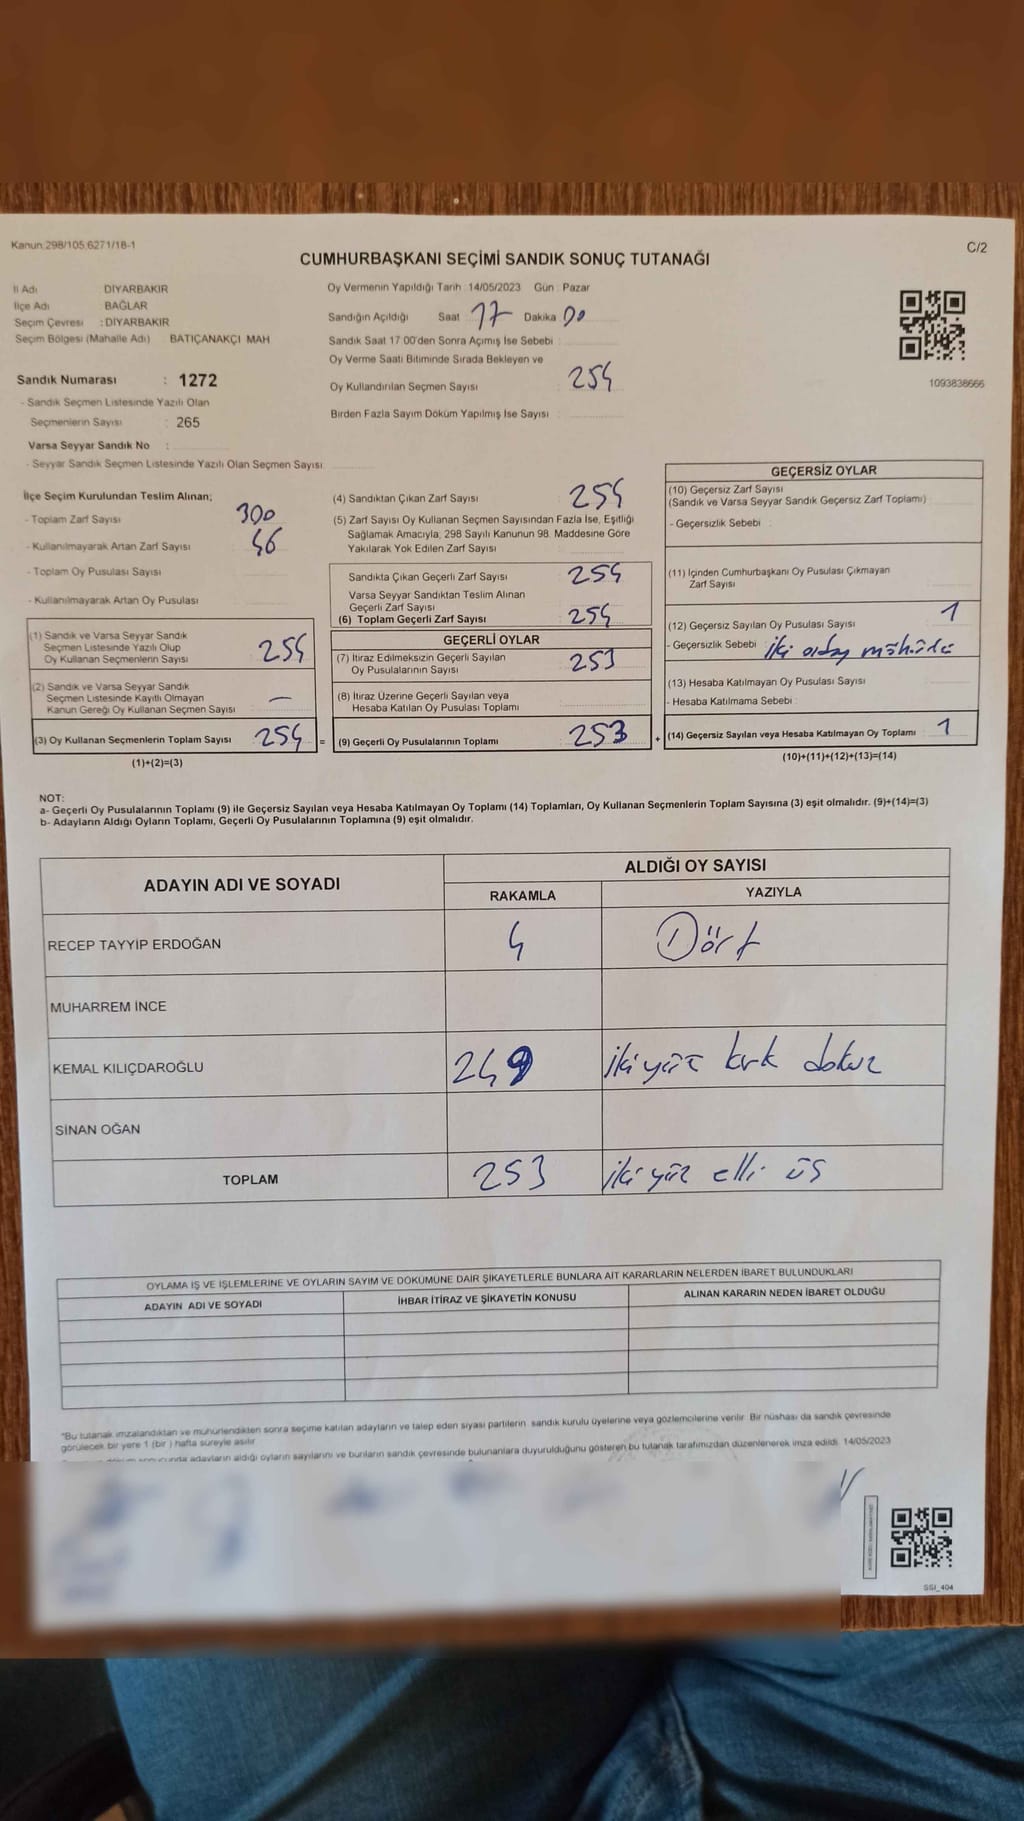 Kanun:298/105,6271/18-1
C/2
CUMHURBAŞKANI SEÇİMİ SANDIK SONUÇ TUTANAĞI
İl Adı DİYARBAKIR
İlçe Adı BAĞLAR
Seçim Çevresi : DİYARBAKIR
Seçim Bölgesi (Mahalle Adı) BATIÇANAKÇI MAH
Sandık Numarası : 1272
- Sandık Seçmen Listesinde Yazılı Olan
Seçmenlerin Sayısı : 265
Varsa Seyyar Sandık No :
- Seyyar Sandık Seçmen Listesinde Yazılı Olan Seçmen Sayısı
Oy Vermenin Yapıldığı Tarih : 14/05/2023 Gün : Pazar
Sandığın Açıldığı Saat 17 Dakika 00
Sandık Saat 17:00'den Sonra Açımış İse Sebebi :
Oy Verme Saati Bitiminde Sırada Bekleyen ve
Oy Kullandırılan Seçmen Sayısı 254
Birden Fazla Sayım Döküm Yapılmış İse Sayısı
1093838666
İlçe Seçim Kurulundan Teslim Alınan;
- Toplam Zarf Sayısı 300
- Kullanılmayarak Artan Zarf Sayısı 46
- Toplam Oy Pusulası Sayısı
- Kullanılmayarak Artan Oy Pusulası
(1) Sandık ve Varsa Seyyar Sandık
Seçmen Listesinde Yazılı Olup
Oy Kullanan Seçmenlerin Sayısı 254
(2) Sandık ve Varsa Seyyar Sandık
Seçmen Listesinde Kayıtlı Olmayan
Kanun Gereği Oy Kullanan Seçmen Sayısı —
(3) Oy Kullanan Seçmenlerin Toplam Sayısı 254 =
(1)+(2)=(3)
(4) Sandıktan Çıkan Zarf Sayısı 254
(5) Zarf Sayısı Oy Kullanan Seçmen Sayısından Fazla İse, Eşitliği
Sağlamak Amacıyla, 298 Sayılı Kanunun 98. Maddesine Göre
Yakılarak Yok Edilen Zarf Sayısı
Sandıkta Çıkan Geçerli Zarf Sayısı 254
Varsa Seyyar Sandıktan Teslim Alınan
Geçerli Zarf Sayısı
(6) Toplam Geçerli Zarf Sayısı 254
GEÇERLİ OYLAR
(7) İtiraz Edilmeksizin Geçerli Sayılan
Oy Pusulalarının Sayısı 253
(8) İtiraz Üzerine Geçerli Sayılan veya
Hesaba Katılan Oy Pusulası Toplamı
(9) Geçerli Oy Pusulalarının Toplamı 253 +
GEÇERSİZ OYLAR
(10) Geçersiz Zarf Sayısı
(Sandık ve Varsa Seyyar Sandık Geçersiz Zarf Toplamı)
- Geçersizlik Sebebi :
(11) İçinden Cumhurbaşkanı Oy Pusulası Çıkmayan
Zarf Sayısı
(12) Geçersiz Sayılan Oy Pusulası Sayısı 1
- Geçersizlik Sebebi : iki
(13) Hesaba Katılmayan Oy Pusulası Sayısı
- Hesaba Katılmama Sebebi :
(14) Geçersiz Sayılan veya Hesaba Katılmayan Oy Toplamı 1
(10)+(11)+(12)+(13)=(14)
NOT:
a- Geçerli Oy Pusulalarının Toplamı (9) ile Geçersiz Sayılan veya Hesaba Katılmayan Oy Toplamı (14) Toplamları, Oy Kullanan Seçmenlerin Toplam Sayısına (3) eşit olmalıdır. (9)+(14)=(3)
b- Adayların Aldığı Oyların Toplamı, Geçerli Oy Pusulalarının Toplamına (9) eşit olmalıdır.
ADAYIN ADI VE SOYADI
ALDIĞI OY SAYISI
RAKAMLA YAZIYLA
RECEP TAYYİP ERDOĞAN 4 Dört
MUHARREM İNCE
KEMAL KILIÇDAROĞLU 249 İkiyüz kırk dokuz
SİNAN OĞAN
TOPLAM 253 İkiyüz elli üs
OYLAMA İŞ VE İŞLEMLERİNE VE OYLARIN SAYIM VE DÖKÜMÜNE DAİR ŞİKAYETLERLE BUNLARA AİT KARARLARIN NELERDEN İBARET BULUNDUKLARI
ADAYIN ADI VE SOYADI İHBAR İTİRAZ VE ŞİKAYETİN KONUSU ALINAN KARARIN NEDEN İBARET OLDUĞU
"Bu tutanak imzalandıktan ve mühürlendikten sonra seçime katılan adayların ve talep eden siyasi partilerin sandık kurulu üyelerine veya gözlemcilerine verilir. Bir nüshası da sandık çevresinde
görülecek bir yere 1 (bir) hafta süreyle asılır.
adayların aldığı oyların sayılarını ve bunların sandık çevresinde bulunanlara duyurulduğunu gösteren bu tutanak tarafımızdan düzenlenerek imza edildi. 14/05/2023
SSI_404